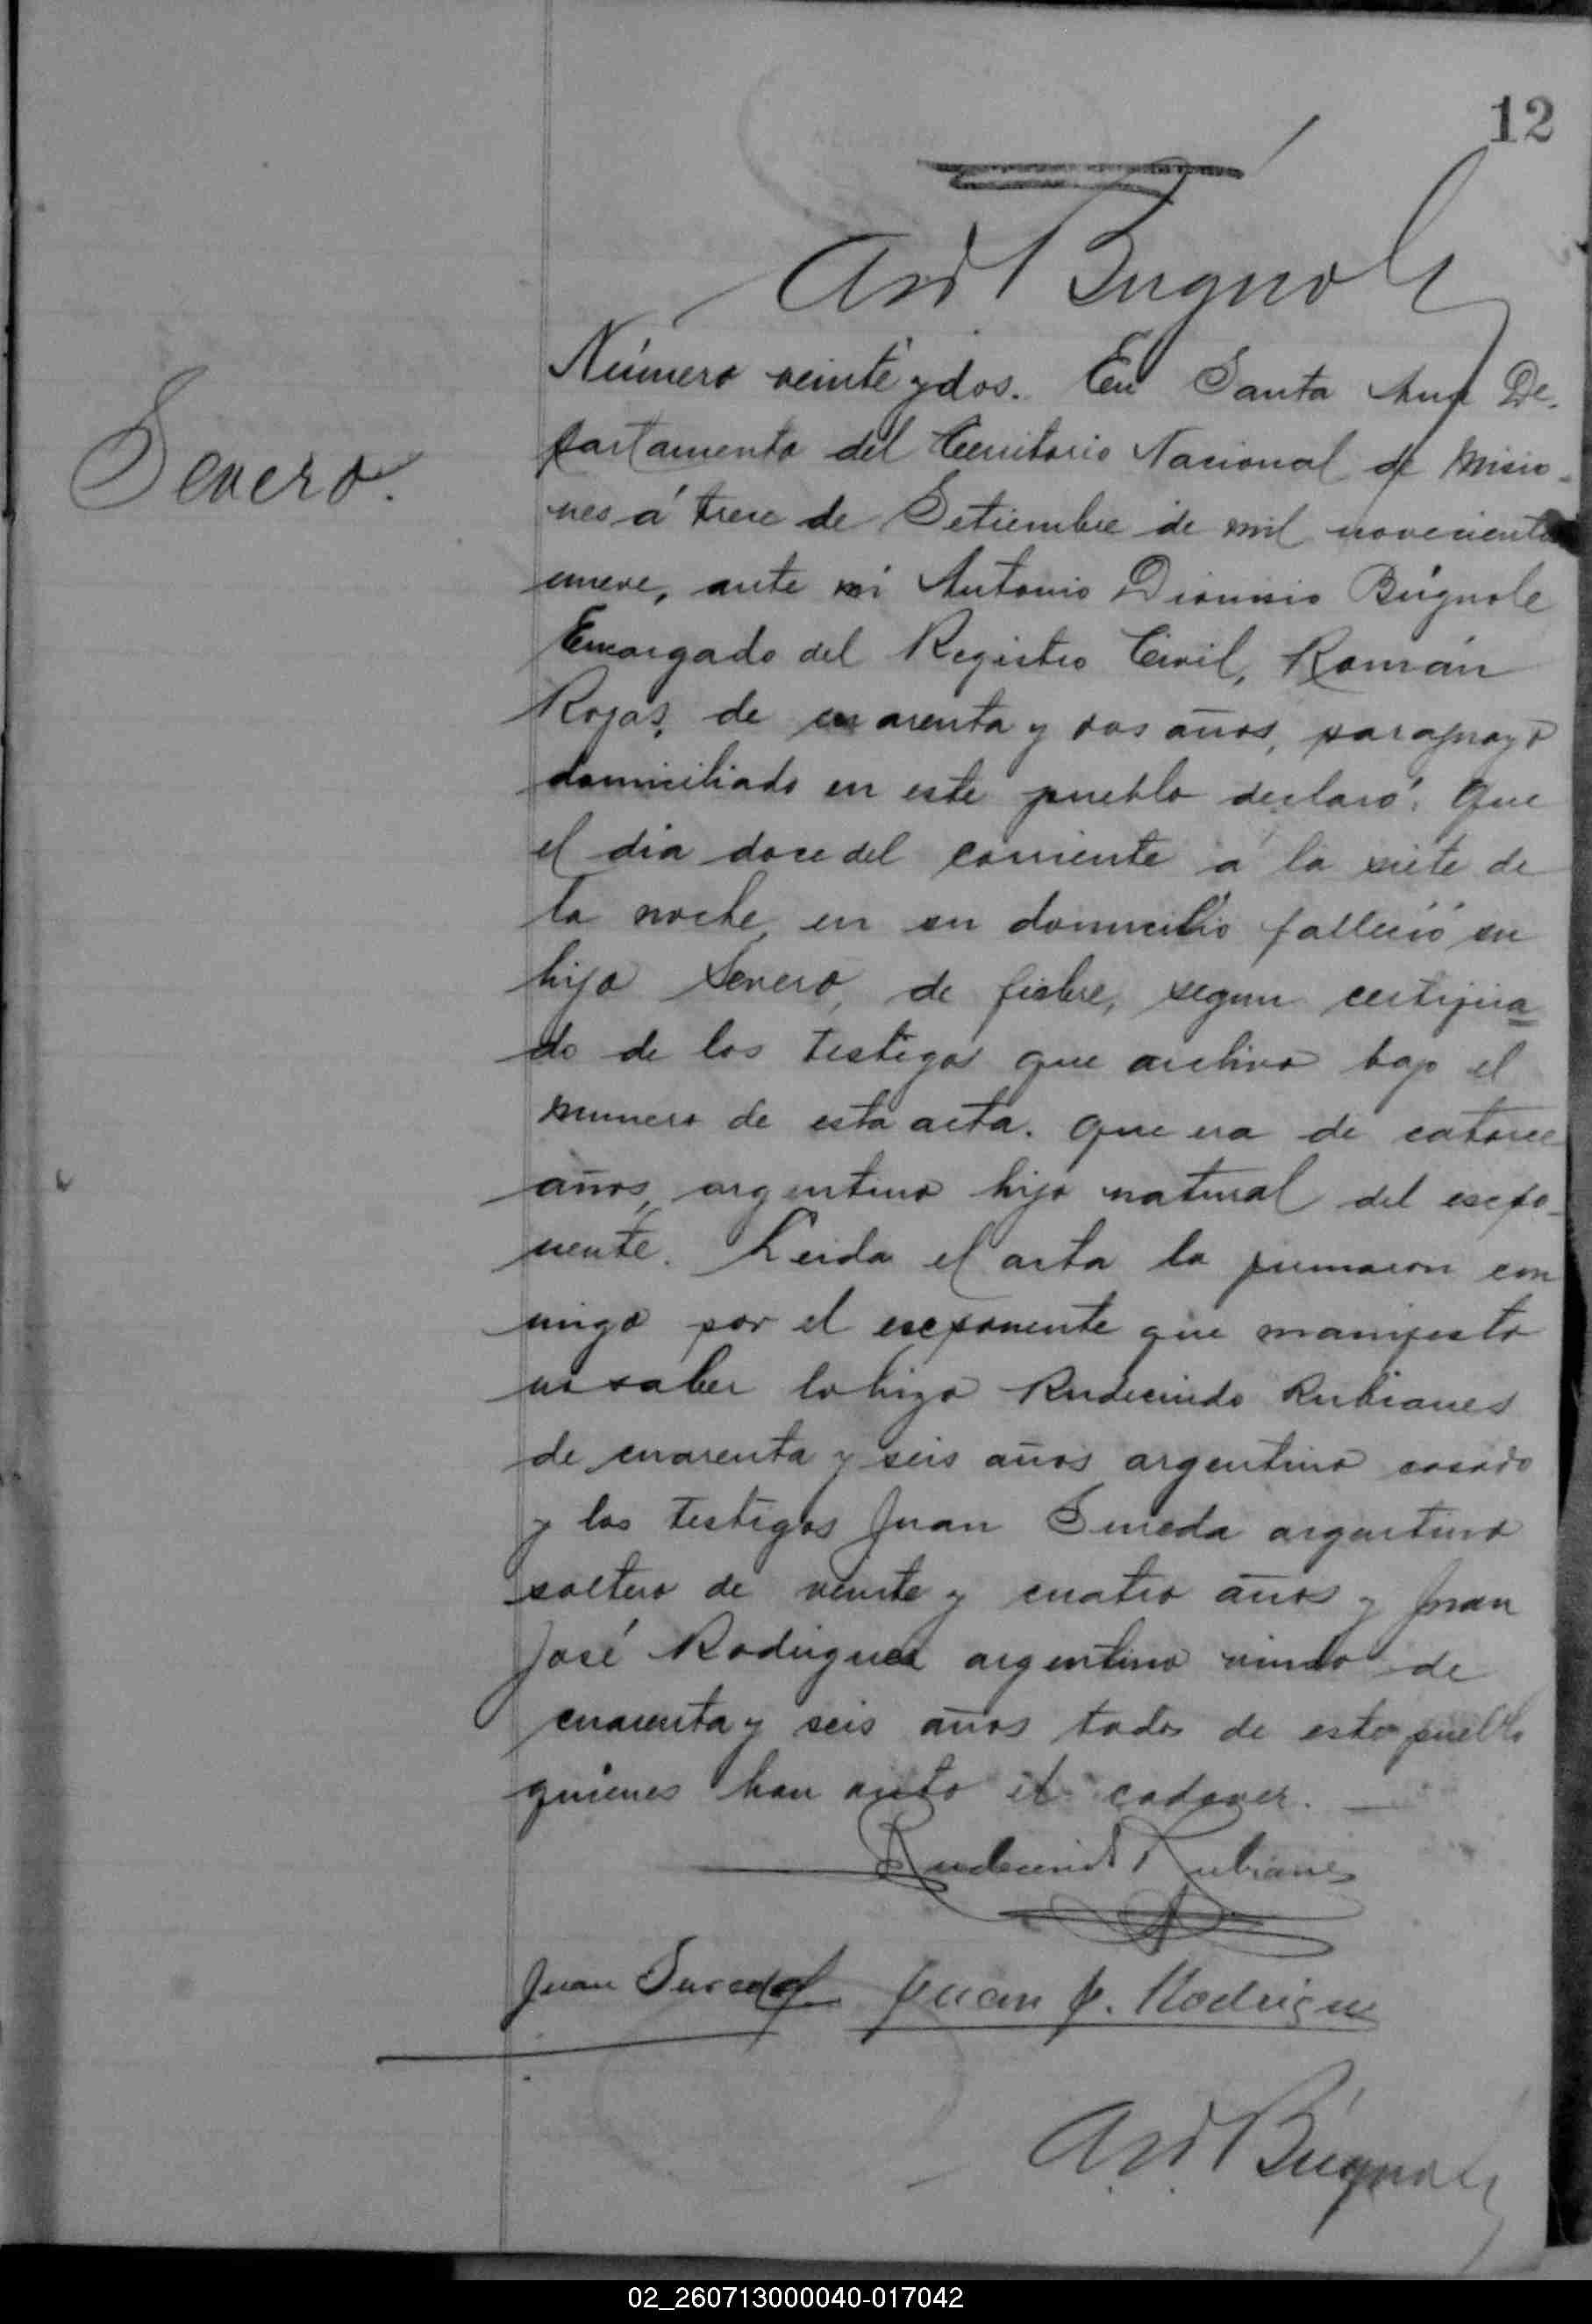 12
Ant Bugnole
Severo.
Número veinte y dos. En Santa Ana De-
partamento del Territorio Nacional de Misio-
nes á trece de Setiembre de mil novecientos
nueve, ante mi Antonio Dionisio Búgnole
Encargado del Registro Civil, Román
Rojas, de cuarenta y dos años, paraguayo
domiciliado en este pueblo declaró: Que
el dia doce del corriente á la siete de
la noche, en su domicilio falleció su
hijo Severo, de fiebre, segun certifica
do de los testigos que archivo bajo el
numero de esta acta. Que era de catorce
años, argentino hijo natural del expo-
nente. Leida el acta la firmaron con
migo por el exponente que manifesto
no saber lo hizo Rudecindo Rubianes
de cuarenta y seis años argentino casado
y los testigos Juan Sureda argentino
soltero de veinte y cuatro años y Juan
José Rodriguez argentino viudo de
cuarenta y seis años todos de este pueblo
quienes han visto el cadaver.
Rudecindo Rubianes
Juan Sureda Juan J. Rodrigue
Ant Búgnole
02_260713000040-017042